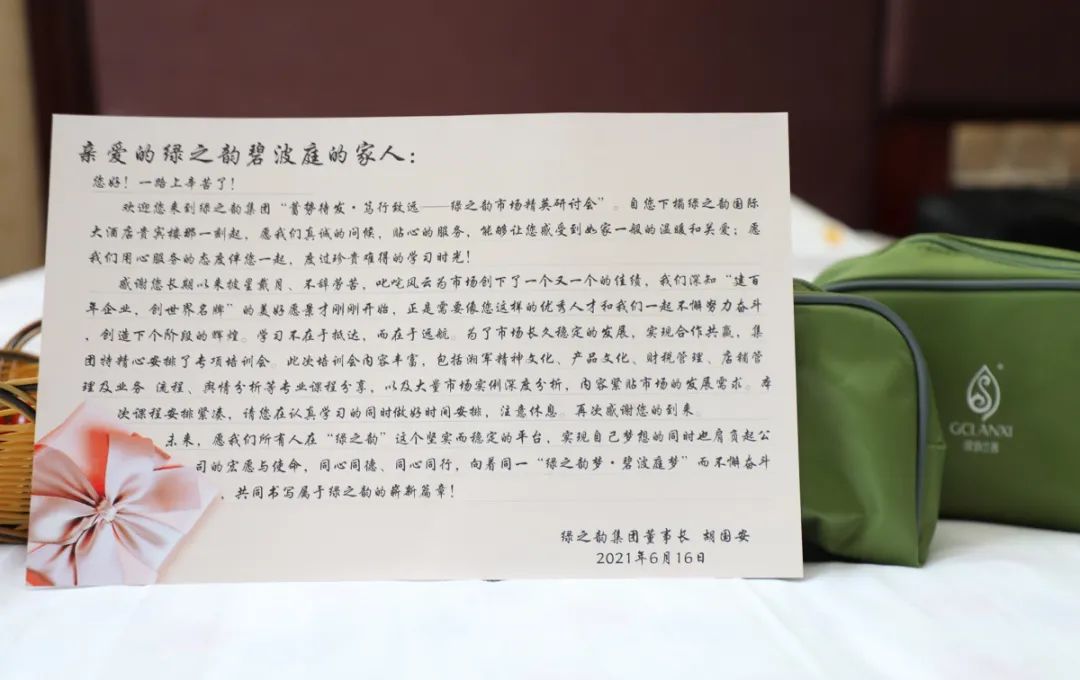 亲爱的绿之韵碧波庭的家人：
您好！一路上辛苦了！
欢迎您来到绿之韵集团“蓄势待发·笃行致远——绿之韵市场精英研讨会”。自您下榻绿之韵国际
大酒店贵宾楼那一刻起，愿我们真诚的问候，贴心的服务，能够让您感受到如家一般的温暖和关爱；愿
我们用心服务的态度伴您一起，度过珍贵难得的学习时光！
感谢您长期以来披星戴月、不辞劳苦，叱咤风云为市场创下了一个又一个的佳绩，我们深知“建百
年企业，创世界名牌”的美好愿景才刚刚开始，正是需要像您这样的优秀人才和我们一起不懈努力奋斗
，创造下个阶段的辉煌。学习不在于抵达，而在于远航。为了市场长久稳定的发展，实现合作共赢，集
团特精心安排了专项培训会。此次培训会内容丰富，包括湘军精神文化、产品文化、财税管理、店铺管
理及业务 流程、舆情分析等专业课程分享，以及大量市场实例深度分析，内容紧贴市场的发展需求。本
次课程安排紧凑，请您在认真学习的同时做好时间安排，注意休息。再次感谢您的到来。
未来，愿我们所有人在“绿之韵”这个坚实而稳定的平台，实现自己梦想的同时也肩负起公
司的宏愿与使命，同心同德、同心同行，向着同一“绿之韵梦·碧波庭梦”而不懈奋斗
，共同书写属于绿之韵的崭新篇章！
绿之韵集团董事长 胡国安
2021年6月16日
GCLANXI